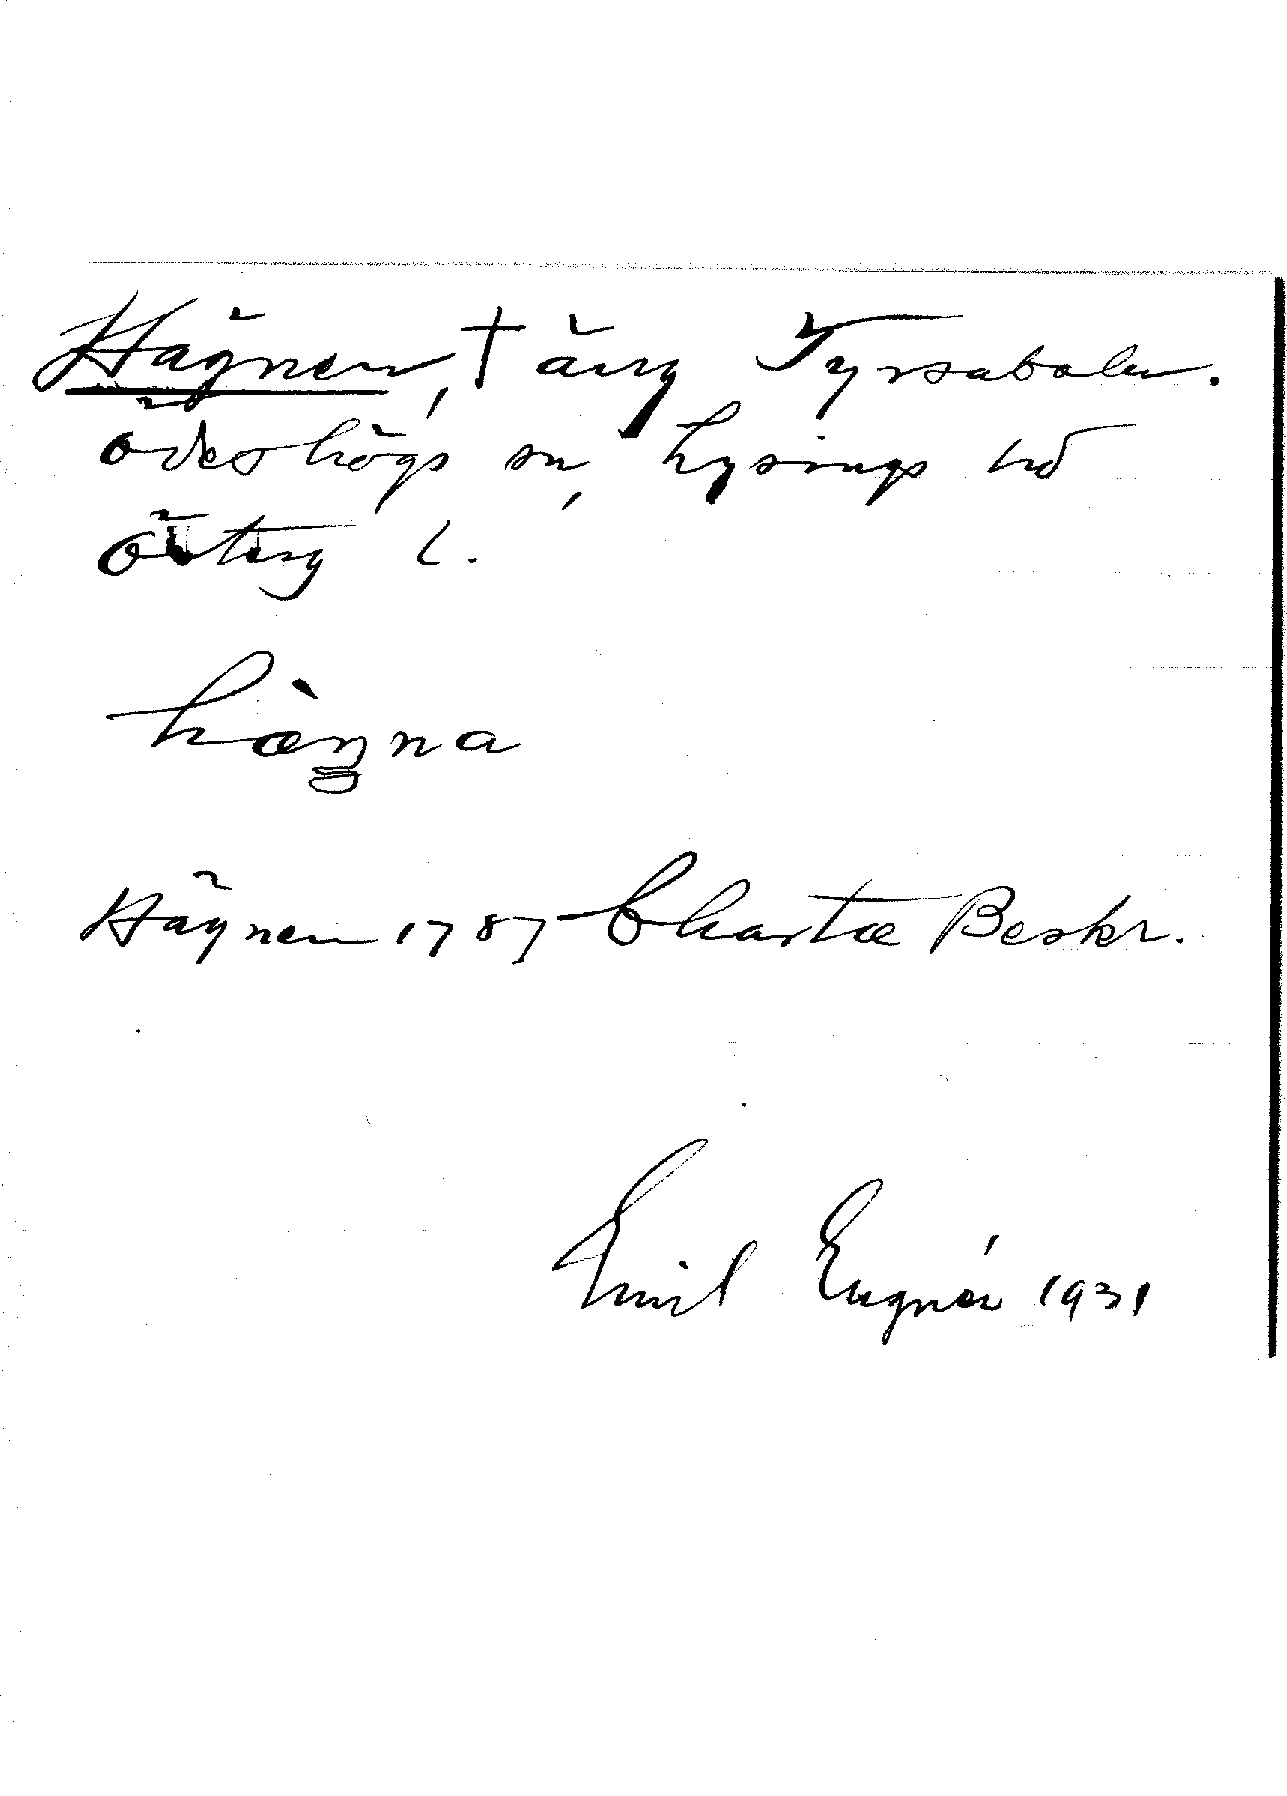 Hägnen, † äng Tyrsabolen.
Ödeshögs sn, Lysings hd
Österg l.
hæ̀ŋna
Hägnen 1787 Chartæ Beskr.
Emil Engnér 1931